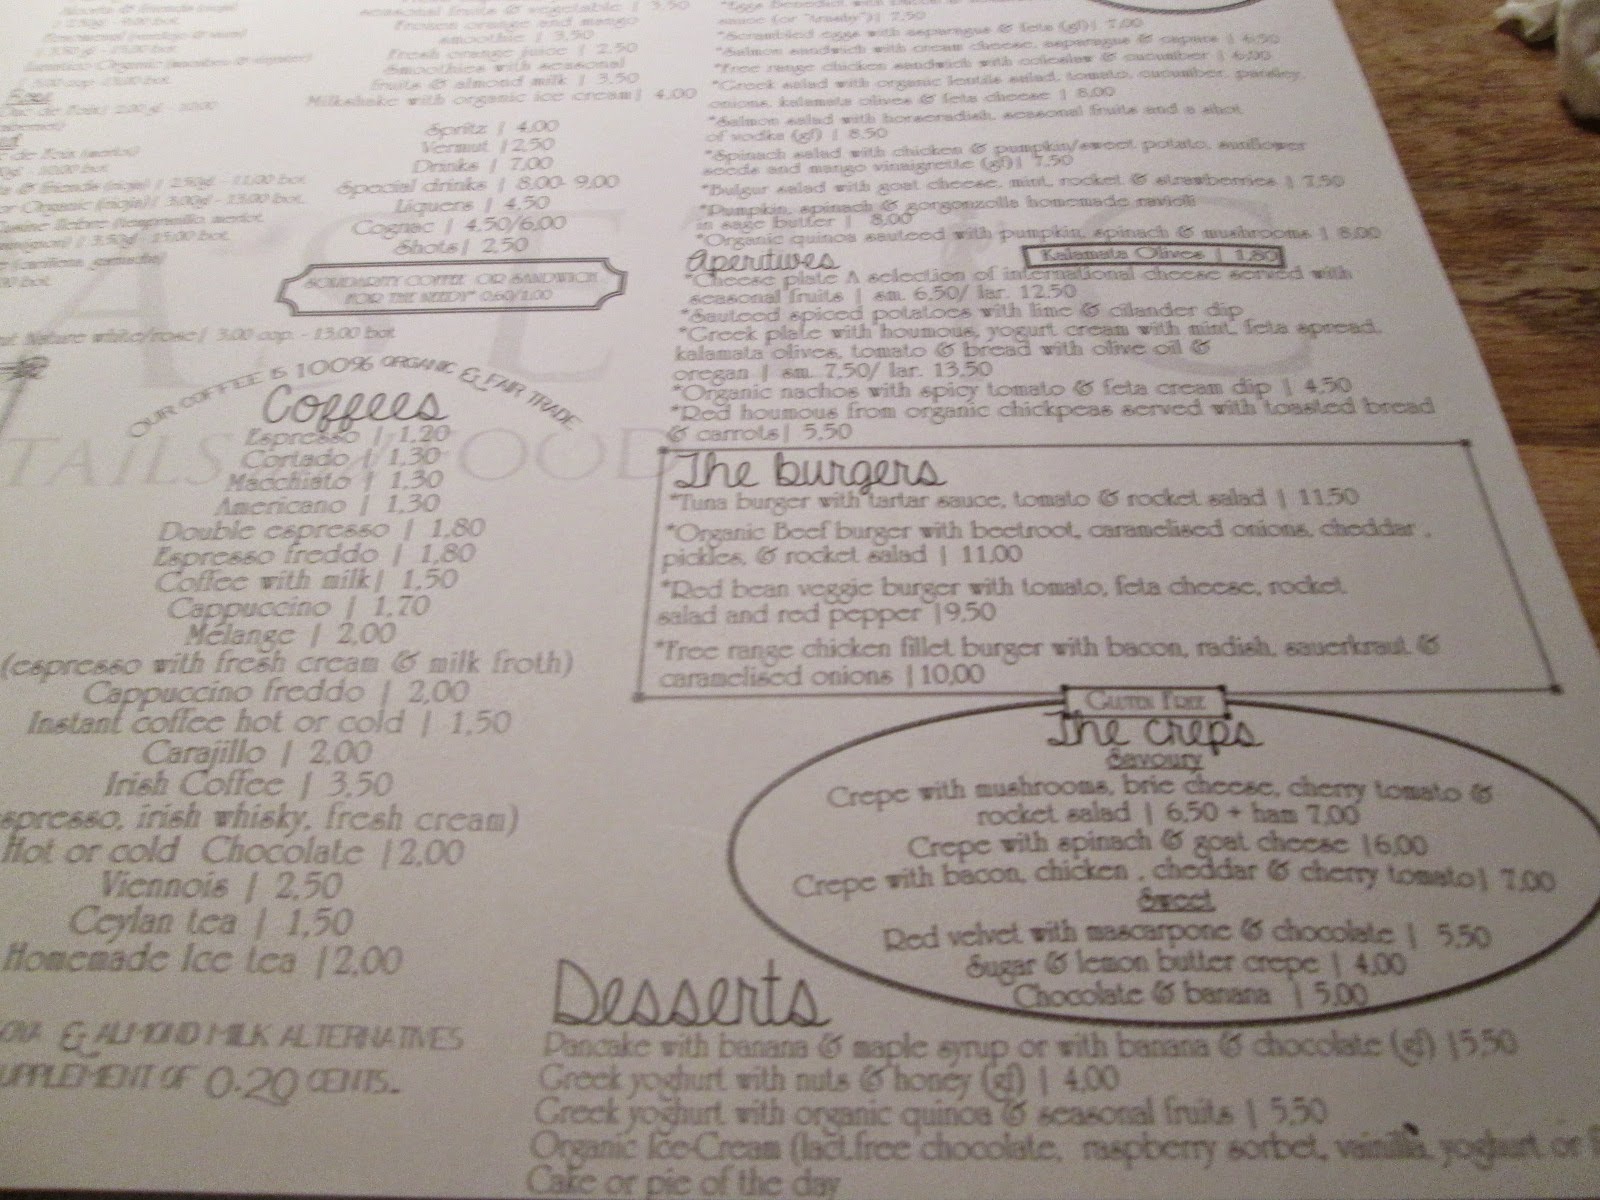 seasonal fruits & vegetable | 3,50
Frozen orange and mango
smoothie | 3,50
Fresh orange juice | 2,50
Smoothies with seasonal
fruits & almond milk | 3,50
Milkshake with organic ice cream| 4,00
Spritz | 4,00
Vermut |2,50
Drinks | 7,00
Special drinks | 8,00- 9,00
Liquers | 4,50
Cognac | 4,50/6,00
Shots| 2,50
SOLIDARITY COFFEE OR SANDWICH
FOR THE NEEDY* 0,60/1,00
Nature white/rose| 3,00 cop. - 15,00 bot.
OUR COFFEE IS 100% ORGANIC & FAIR TRADE
Coffees
Espresso | 1,20
Cortado | 1,30
Macchiato | 1,30
Americano | 1,30
Double espresso | 1,80
Espresso freddo | 1,80
Coffee with milk| 1,50
Cappuccino | 1,70
Mélange | 2,00
(espresso with fresh cream & milk froth)
Cappuccino freddo | 2,00
Instant coffee hot or cold | 1,50
Carajillo | 2,00
Irish Coffee | 3,50
spresso, irish whisky, fresh cream)
Hot or cold Chocolate |2,00
Viennois | 2,50
Ceylan tea | 1,50
Homemade Ice tea |2,00
& ALMOND MILK ALTERNATIVES
UPPLEMENT OF 0.20 CENTS.
sauce (or "trushy")| 7,50
*Scrambled eggs with asparagus & feta (gf)| 7,00
*Salmon sandwich with cream cheese, asparagus & capers | 6,50
*Free range chicken sandwich with coleslaw & cucumber | 6,00
*Greek salad with organic lentils salad, tomato, cucumber, parsley,
onions, kalamata olives & feta cheese | 8,00
*Salmon salad with horseradish, seasonal fruits and a shot
of vodka (gf) | 8,50
*Spinach salad with chicken & pumpkin/sweet potato, sunflower
seeds and mango vinaigrette (gf)| 7,50
*Bulgur salad with goat cheese, mint, rocket & strawberries | 7,50
*Pumpkin, spinach & gorgonzolla homemade ravioli
in sage butter | 8,00
*Organic quinoa sauteed with pumpkin, spinach & mushrooms | 8,00
Aperitives
Kalamata Olives | 1,80
*Cheese plate A selection of international cheese served with
seasonal fruits | sm. 6,50/ lar. 12,50
*Sauteed spiced potatoes with lime & cilander dip
*Greek plate with houmous, yogurt cream with mint, feta spread,
kalamata olives, tomato & bread with olive oil &
oregan | sm. 7,50/ lar. 13,50
*Organic nachos with spicy tomato & feta cream dip | 4,50
*Red houmous from organic chickpeas served with toasted bread
& carrots| 5,50
The burgers
*Tuna burger with tartar sauce, tomato & rocket salad | 11,50
*Organic Beef burger with beetroot, caramelised onions, cheddar ,
pickles, & rocket salad | 11,00
*Red bean veggie burger with tomato, feta cheese, rocket
salad and red pepper |9,50
*Free range chicken fillet burger with bacon, radish, sauerkraut &
caramelised onions |10,00
Gluten Free
The creps
Savoury
Crepe with mushrooms, brie cheese, cherry tomato &
rocket salad | 6,50 + ham 7,00
Crepe with spinach & goat cheese |6,00
Crepe with bacon, chicken , cheddar & cherry tomato| 7,00
Sweet
Red velvet with mascarpone & chocolate | 5,50
Sugar & lemon butter crepe | 4,00
Chocolate & banana | 5,00
Desserts
Pancake with banana & maple syrup or with banana & chocolate (gf) |5,50
Greek yoghurt with nuts & honey (gf) | 4,00
Greek yoghurt with organic quinoa & seasonal fruits | 5,50
Organic Ice-Cream (lact.free chocolate, raspberry sorbet, vainilla, yoghurt or
Cake or pie of the day